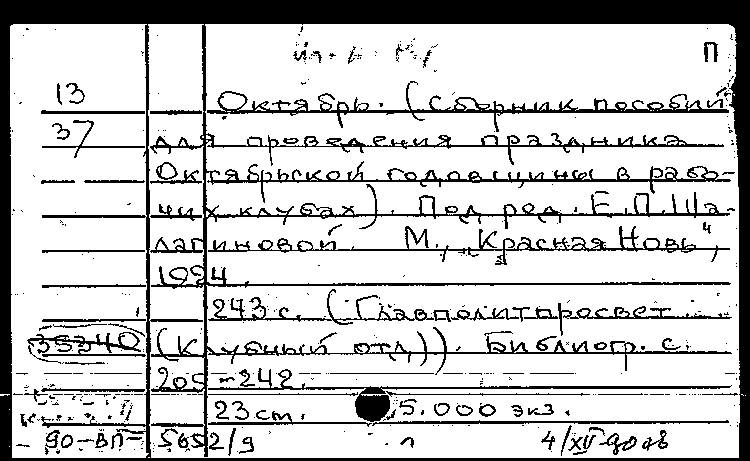 П
13 Октябрь. (Сборник пособий
37 для проведения праздника
Октябрьской годовщины в рабо-
чих клубах). Под ред. Е.П.Ша-
лагиновой. М., „Красная Новь“,
1924.
243 с. (Главполитпросвет
35340 (Клубный отд)). Библиогр. с.
205-242.
23 cm. 5.000 экз.
90-ВП- 5652/9 4/XII-90